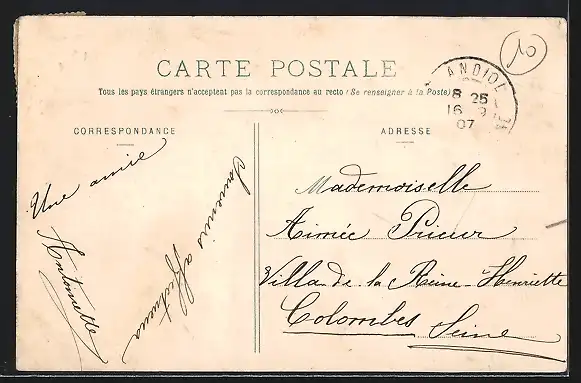 10
CARTE POSTALE
Tous les pays étrangers n'acceptent pas la correspondance au recto (Se renseigner à la Poste)
ANDIOL
8 25
16 9
07
CORRESPONDANCE
ADRESSE
Une amie
Antoinette
Souvenirs affectueux
Mademoiselle
Aimée Prieur
Villa de la Reine Henriette
Colombes Seine